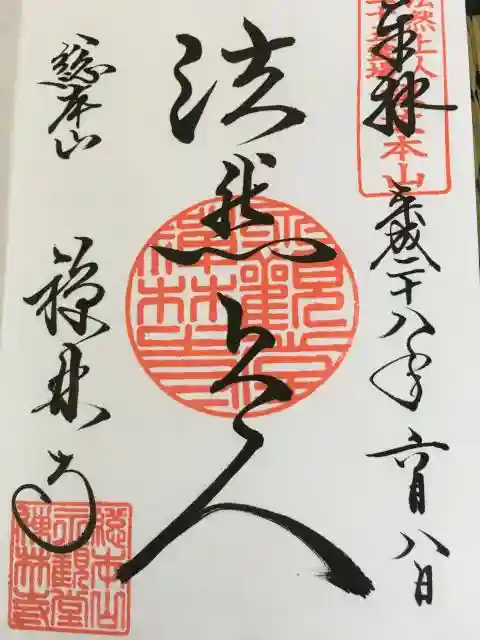 奉拝
法然上人
二十五霊場
総本山
平成二十八年六月八日
法然上人
総本山
禅林寺
総本山
永観堂
禅林寺